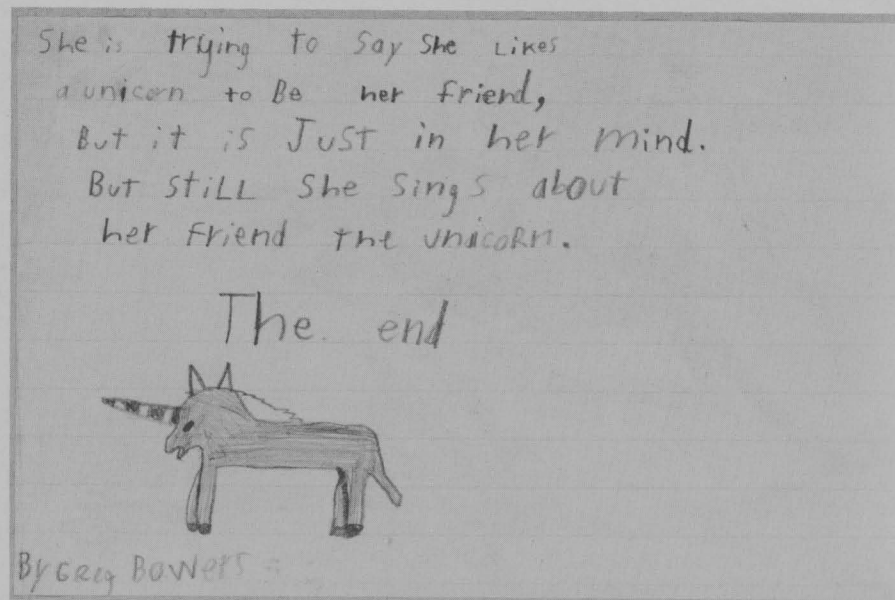 She is trying to Say She Likes
a unicorn to Be her friend,
But it is Just in her mind.
But stiLL She Sings about
her Friend the unicoRn.
The end
By Greg Bowers